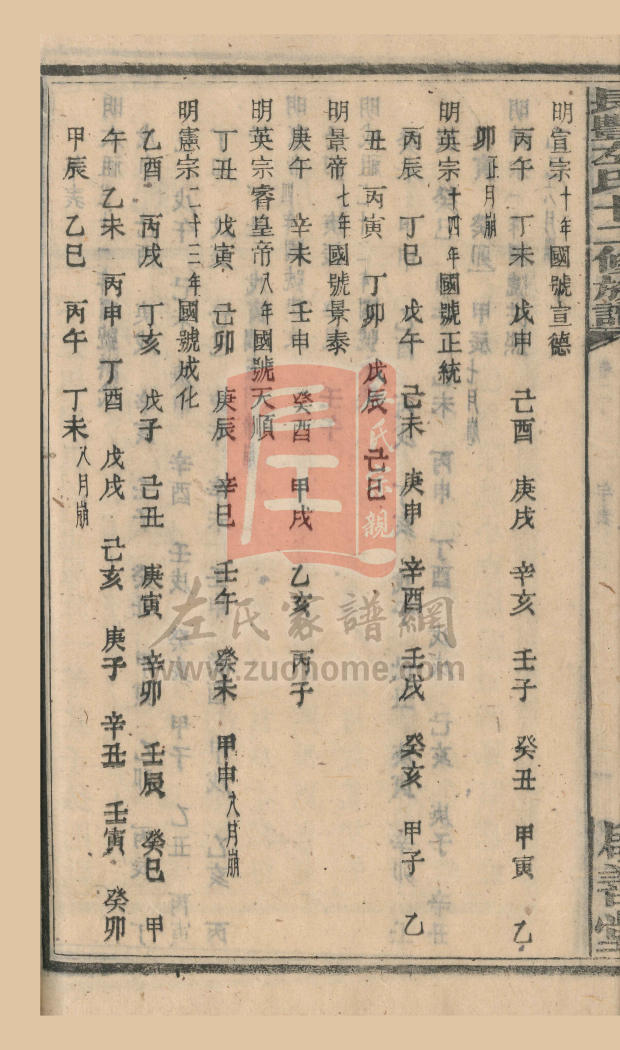 長豐左氏十二修族譜
年表
明宣宗十年國號宣德
丙午 丁未 戊申 己酉 庚戌 辛亥 壬子 癸丑 甲寅 乙
卯正月崩
明英宗十四年國號正統
丙辰 丁巳 戊午 己未 庚申 辛酉 壬戌 癸亥 甲子 乙
丑 丙寅 丁卯 戊辰 己巳
明景帝七年國號景泰
庚午 辛未 壬申 癸酉 甲戌 乙亥 丙子
明英宗睿皇帝八年國號天順
丁丑 戊寅 己卯 庚辰 辛巳 壬午 癸未 甲申八月崩
明憲宗二十三年國號成化
乙酉 丙戌 丁亥 戊子 己丑 庚寅 辛卯 壬辰 癸巳 甲
午 乙未 丙申 丁酉 戊戌 己亥 庚子 辛丑 壬寅 癸卯
甲辰 乙巳 丙午 丁未八月崩
左氏宗親
左氏家譜網
www.zuohome.com